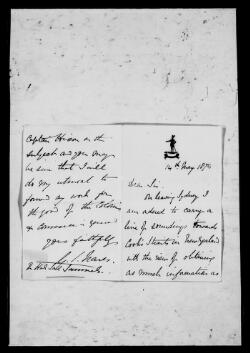 14th May 1874
Dear Sir.
On leaving Sydney I
am advised to carry a
line of soundings towards
Cooks Straits in New Zealand
with the view of obtaining
as much information as
Captain Hixson on the
subject and you may
be sure that I will
do my utmost to
forward any work for
the good of the Colonies
yours faithfully
G. S. Nares